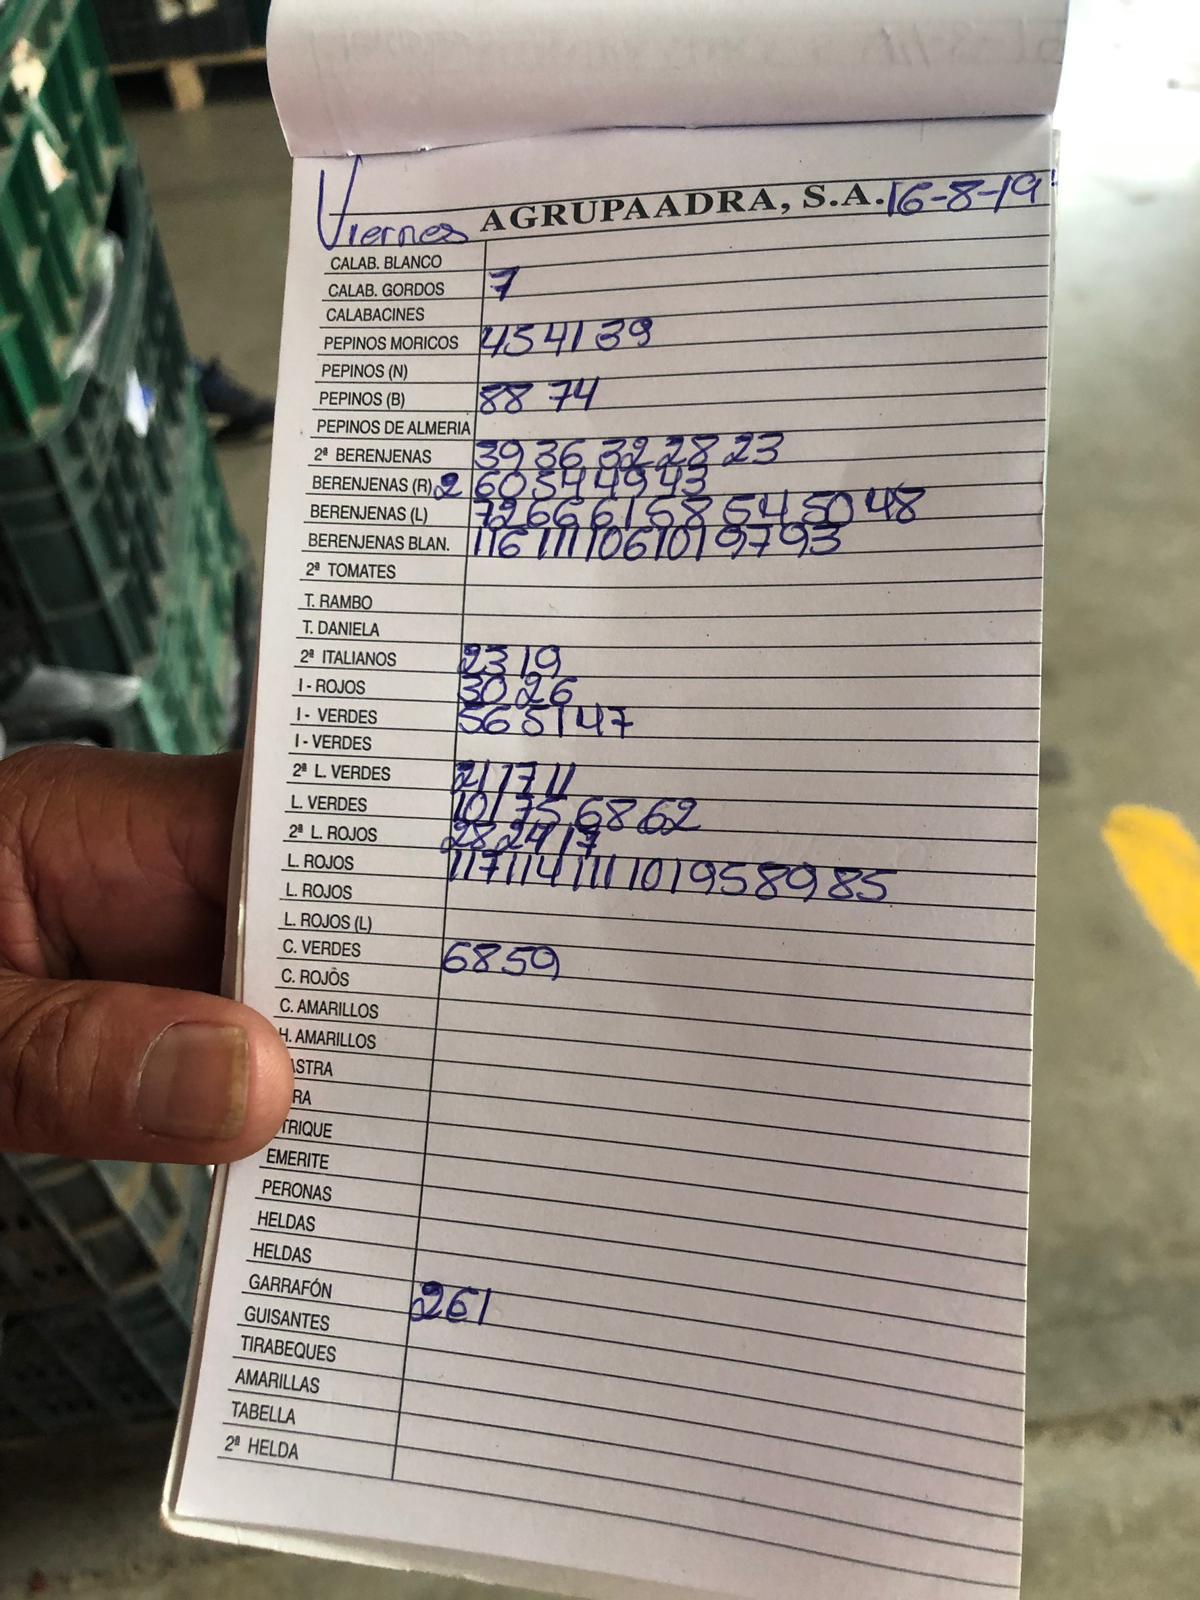 Viernes AGRUPAADRA, S.A. 16-8-19
CALAB. BLANCO
CALAB. GORDOS 7
CALABACINES
PEPINOS MORICOS 45 41 39
PEPINOS (N)
PEPINOS (B) 88 74
PEPINOS DE ALMERIA
2ª BERENJENAS 39 36 32 28 23
BERENJENAS (R) 2 60 54 49 43
BERENJENAS (L) 72 66 61 58 54 50 48
BERENJENAS BLAN. 116 111 106 101 97 93
2ª TOMATES
T. RAMBO
T. DANIELA
2ª ITALIANOS 23 19
I - ROJOS 30 26
I - VERDES 56 51 47
I - VERDES
2ª L. VERDES 21 17 11
L. VERDES 101 75 68 62
2ª L. ROJOS 28 24 17
L. ROJOS 117 114 111 101 95 89 85
L. ROJOS
L. ROJOS (L)
C. VERDES 68 59
C. ROJOS
C. AMARILLOS
H. AMARILLOS
ASTRA
RA
TRIQUE
EMERITE
PERONAS
HELDAS
HELDAS
GARRAFÓN 261
GUISANTES
TIRABEQUES
AMARILLAS
TABELLA
2ª HELDA